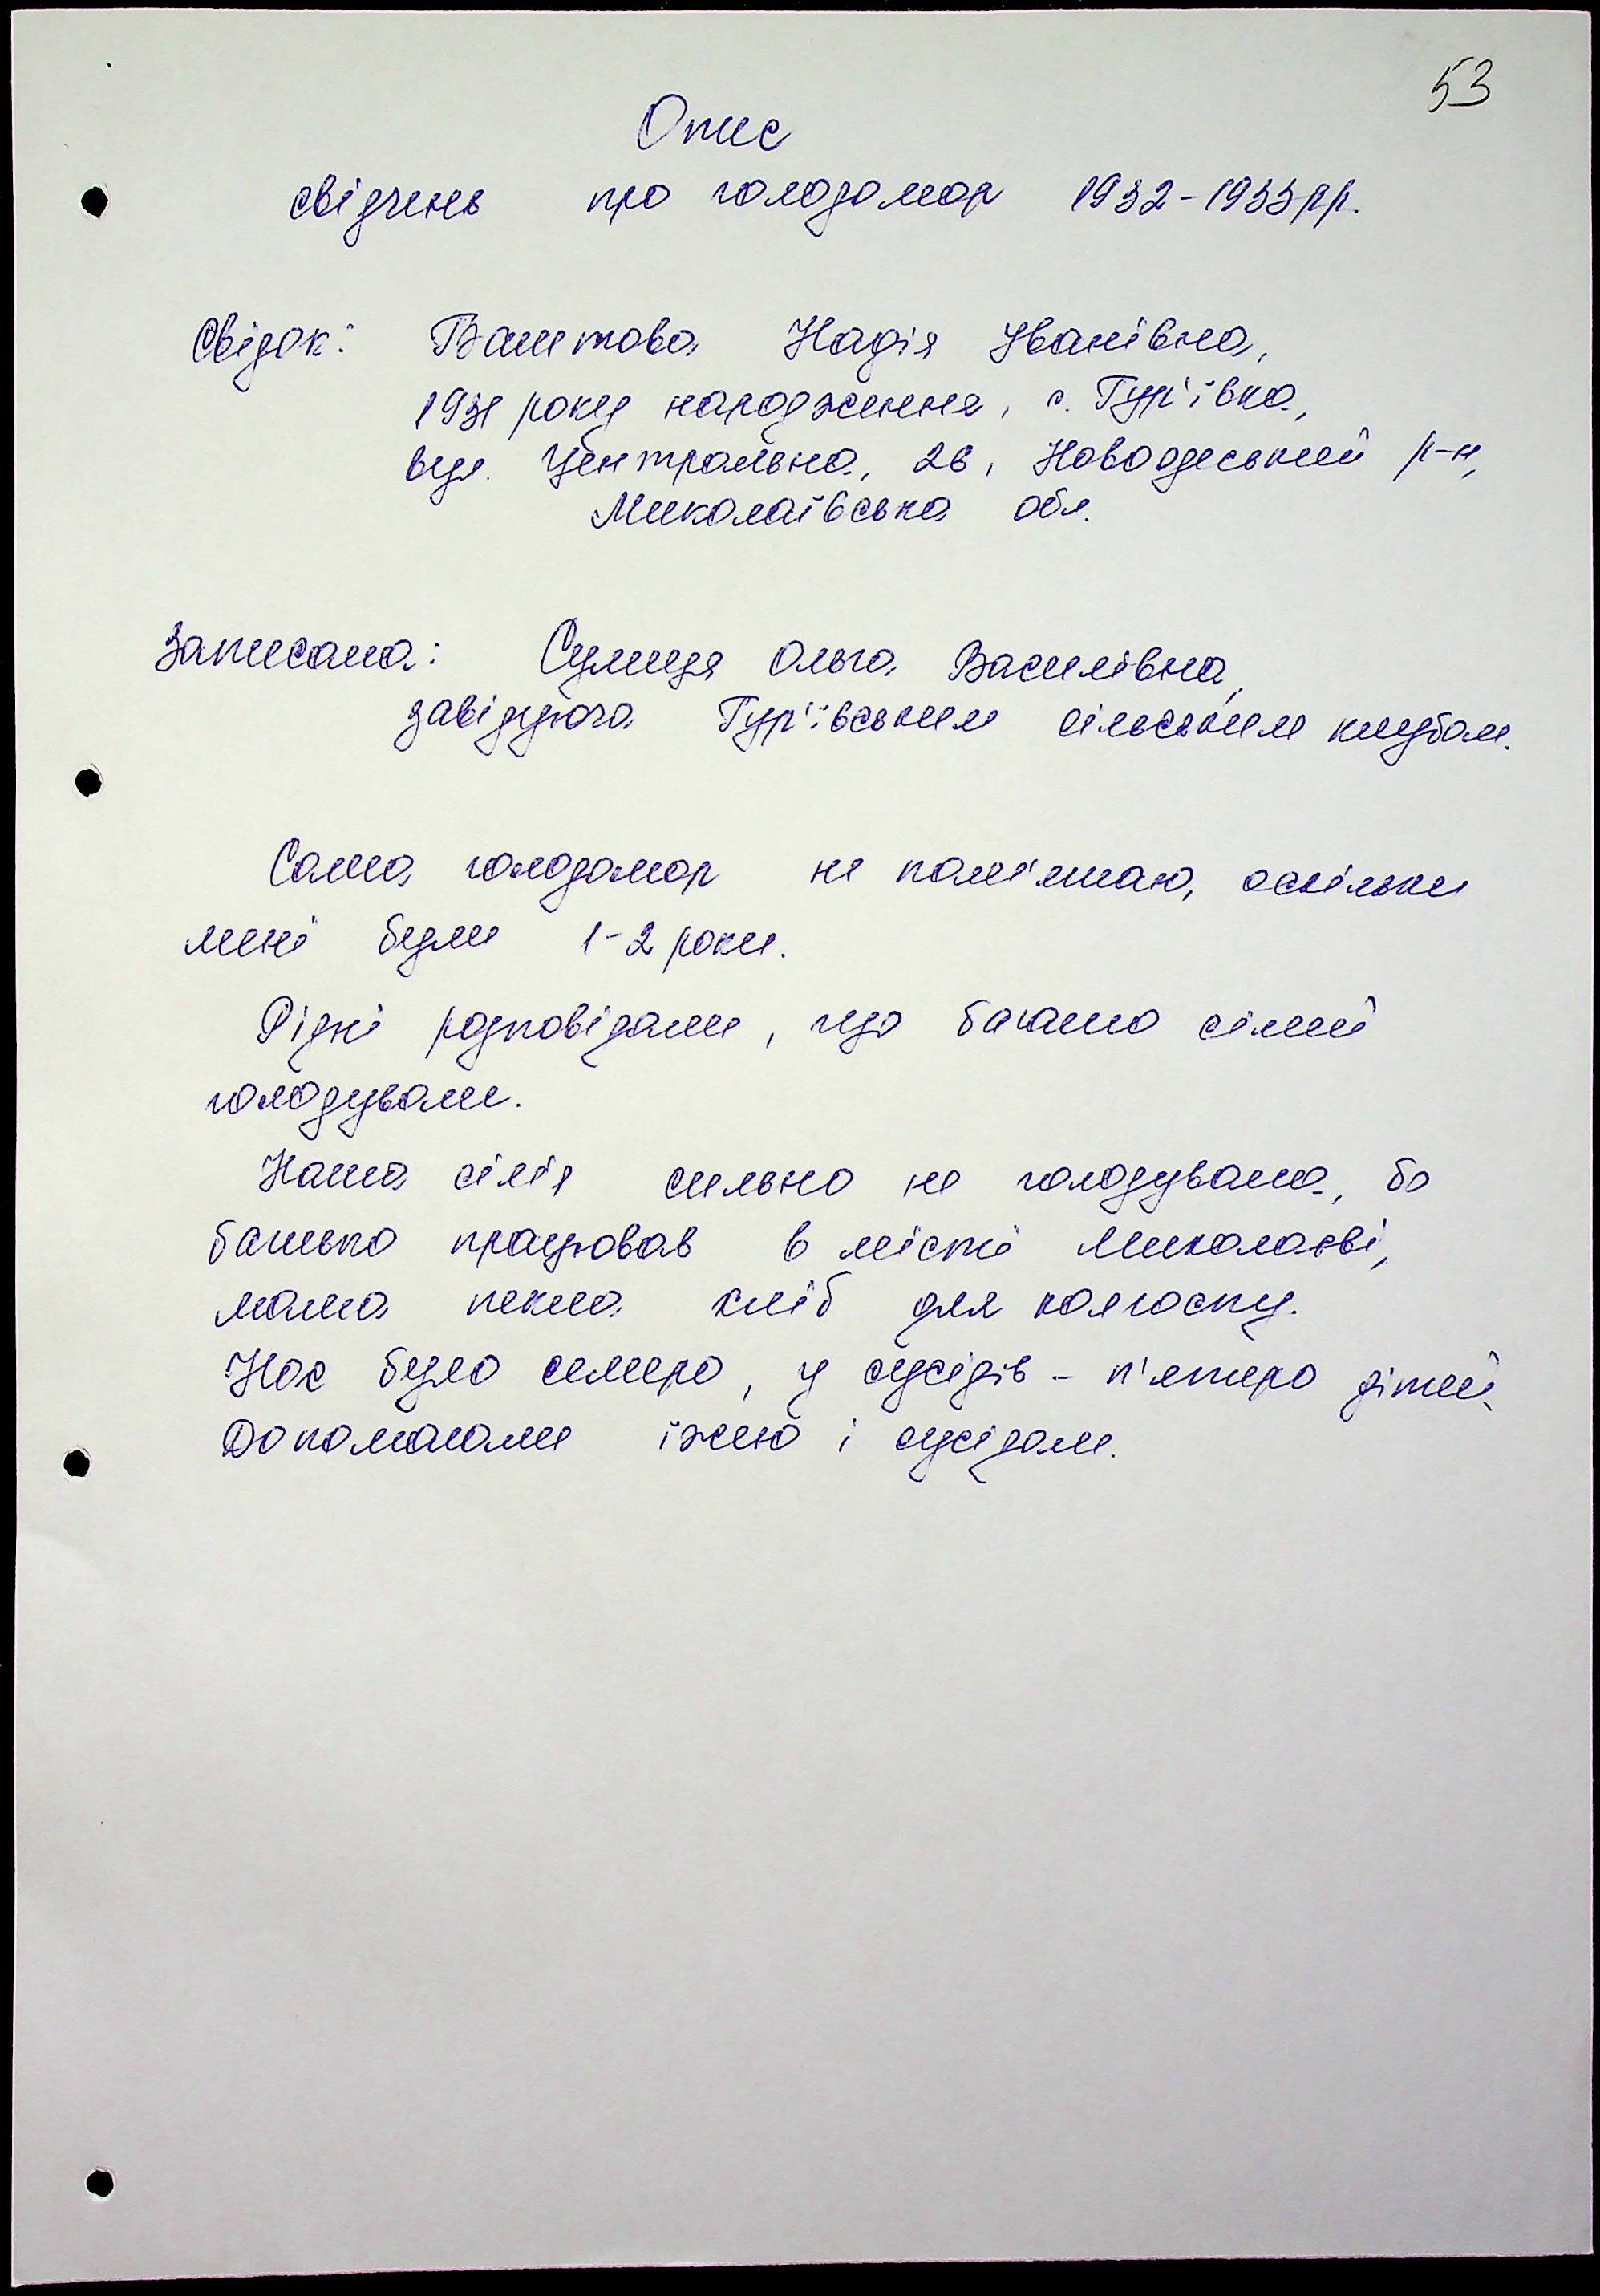 53
Опис
свідчень про голодомор 1932-1933рр.
Свідок: Баштова Надія Іванівна,
1931 року народження, с. Гур'ївка,
вул. Центральна, 26, Новоодеський р-н,
Миколаївська обл.
Записала: Сулиця Ольга Василівна,
завідуюча Гур'ївським сільським клубом.
Сама голодомор не пам'ятаю, оскільки
мені були 1-2 роки.
Рідні розповідали, що багато сімей
голодували.
Наша сім'я сильно не голодувала, бо
батько працював в місті Миколаєві,
мама пекла хліб для колгоспу.
Нас було семеро, у сусідів - п'ятеро дітей.
Допомагали їжею і сусідам.